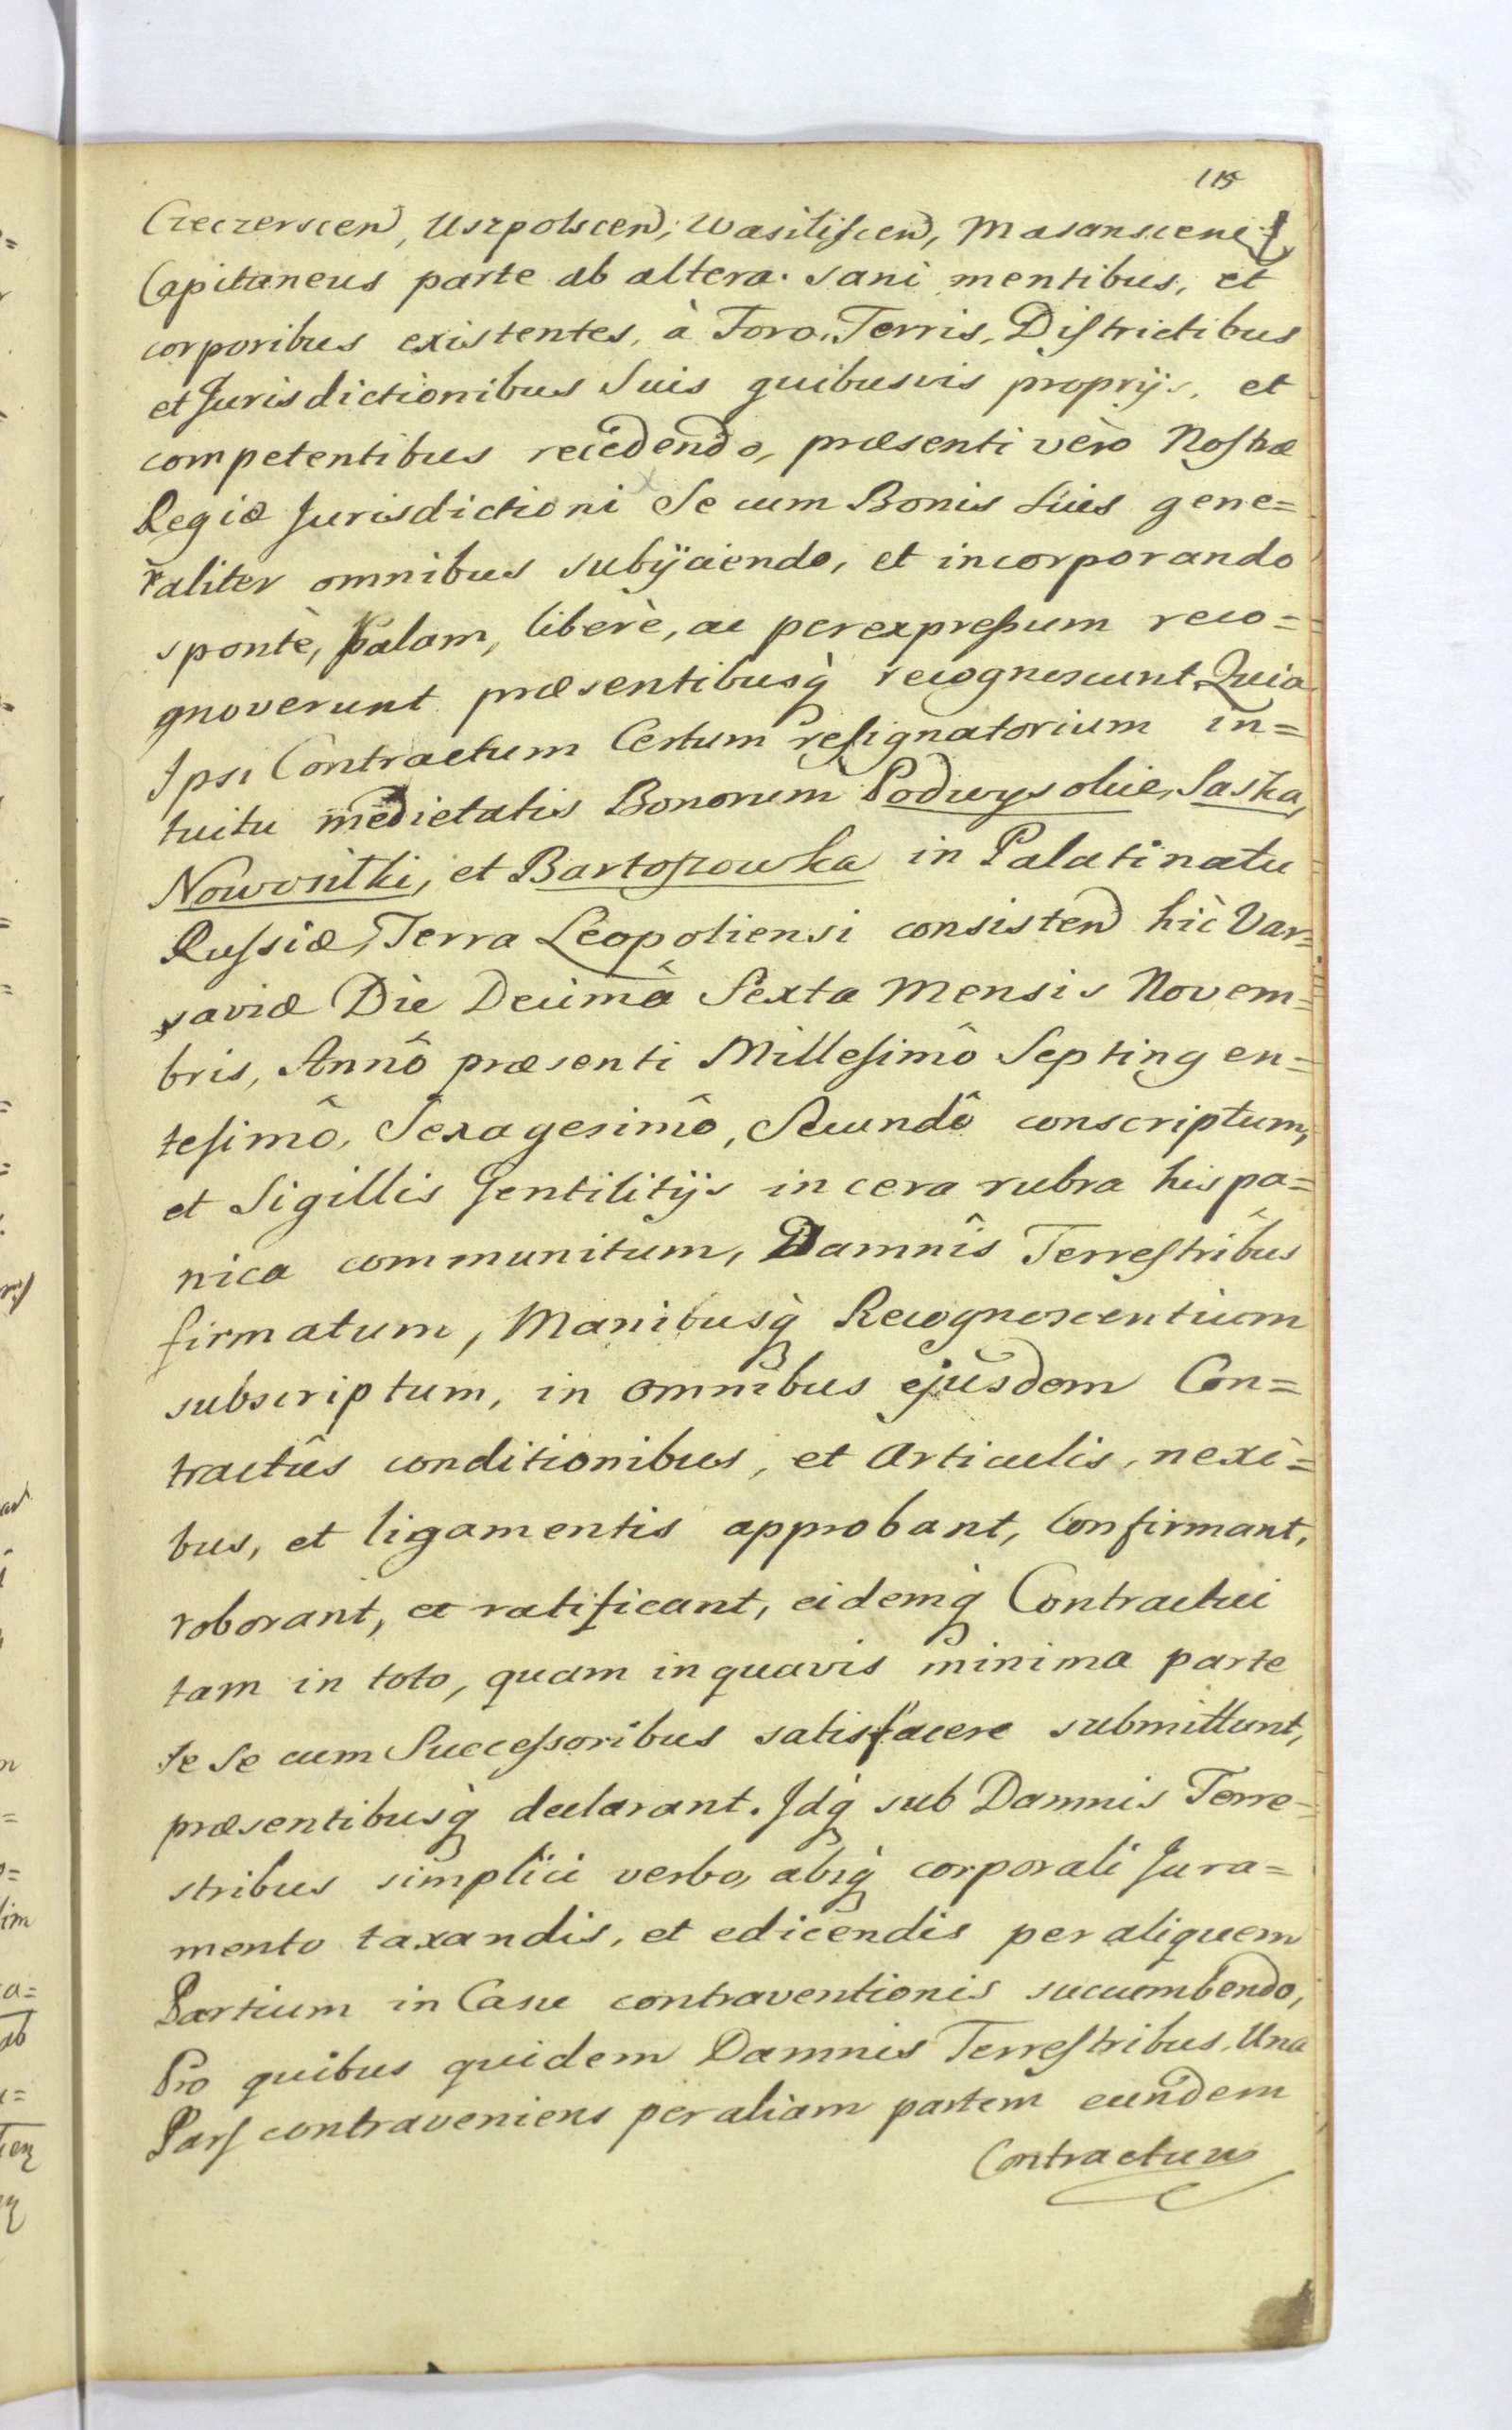 115
Czeczerscen, Uszpolscen, Wasiliscen, Masanscen &
Capitaneus parte ab altera. sani mentibus, et
corporibus existentes, à Foro, Terris, Districtibus
et Jurisdictionibus Suis quibusvis proprijs, et
competentibus recedendo, præsenti verò Nostræ
Regiæ Jurisdictioni Se cum Bonis Suis gene=
raliter omnibus subijciendo, et incorporando
spontè, palam, liberè, ac per expressum reco=
gnoverunt præsentibusq̀ recognoscunt. Quia
Ipsi Contractum Certum resignatorium in=
tuitu medietatis Bonorum Podwysokie, Saska,
Nowositki, et Bartoszowka in Palatinatu
Russiæ, Terra Leopoliensi consisten hìc Var=
saviæ Die Decimâ Sexta Mensis Novem=
bris, Annô præsenti Millesimô Septingen=
tesimô, Sexagesimô, Secundô conscriptum,
et Sigillis Gentilitijs in cera rubra hispa=
nica communitum, Damnîs Terrestribus
firmatum, Manibusq̀ Recognoscentium
subscriptum, in omnibus ejusdem Con=
tractûs conditionibus, et Articulis, nexi=
bus, et ligamentis approbant, Confirmant,
roborant, et ratificant, eidemq̀ Contractui
tam in toto, quam in quavis minima parte
se se cum Successoribus satisfacere submittunt,
præsentibusq̀ declarant. Idq̀ sub Damnis Terre=
stribus simplici verbo, absq̀ corporali Jura=
mento taxandis, et edicendis per aliquem
Partium in Casu contraventionis sucumbendo,
Pro quibus quidem Damnis Terrestribus, Una
Pars contraveniens per aliam partem eundem
Contractum